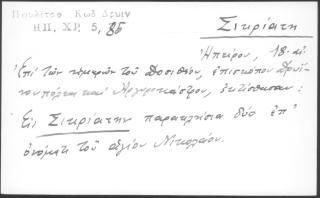 Πουλίτσα Κωδ Δρυιν
ΗΠ. ΧΡ. 5, 86
Σικριάτη
Ἠπείρου, 18:
Ἐπί τῶν ἡμερῶν τοῦ Δοσιθέου, ἐπισκόπου Δρυϊ
νουπόλεως καί Ἀργυροκάστρου, ἐκτίσθησαν:
Εἰς Σικριάτην παρακλήσια δύο ἐπ'
ὀνόματι τοῦ ἁγίου Νικολάου.